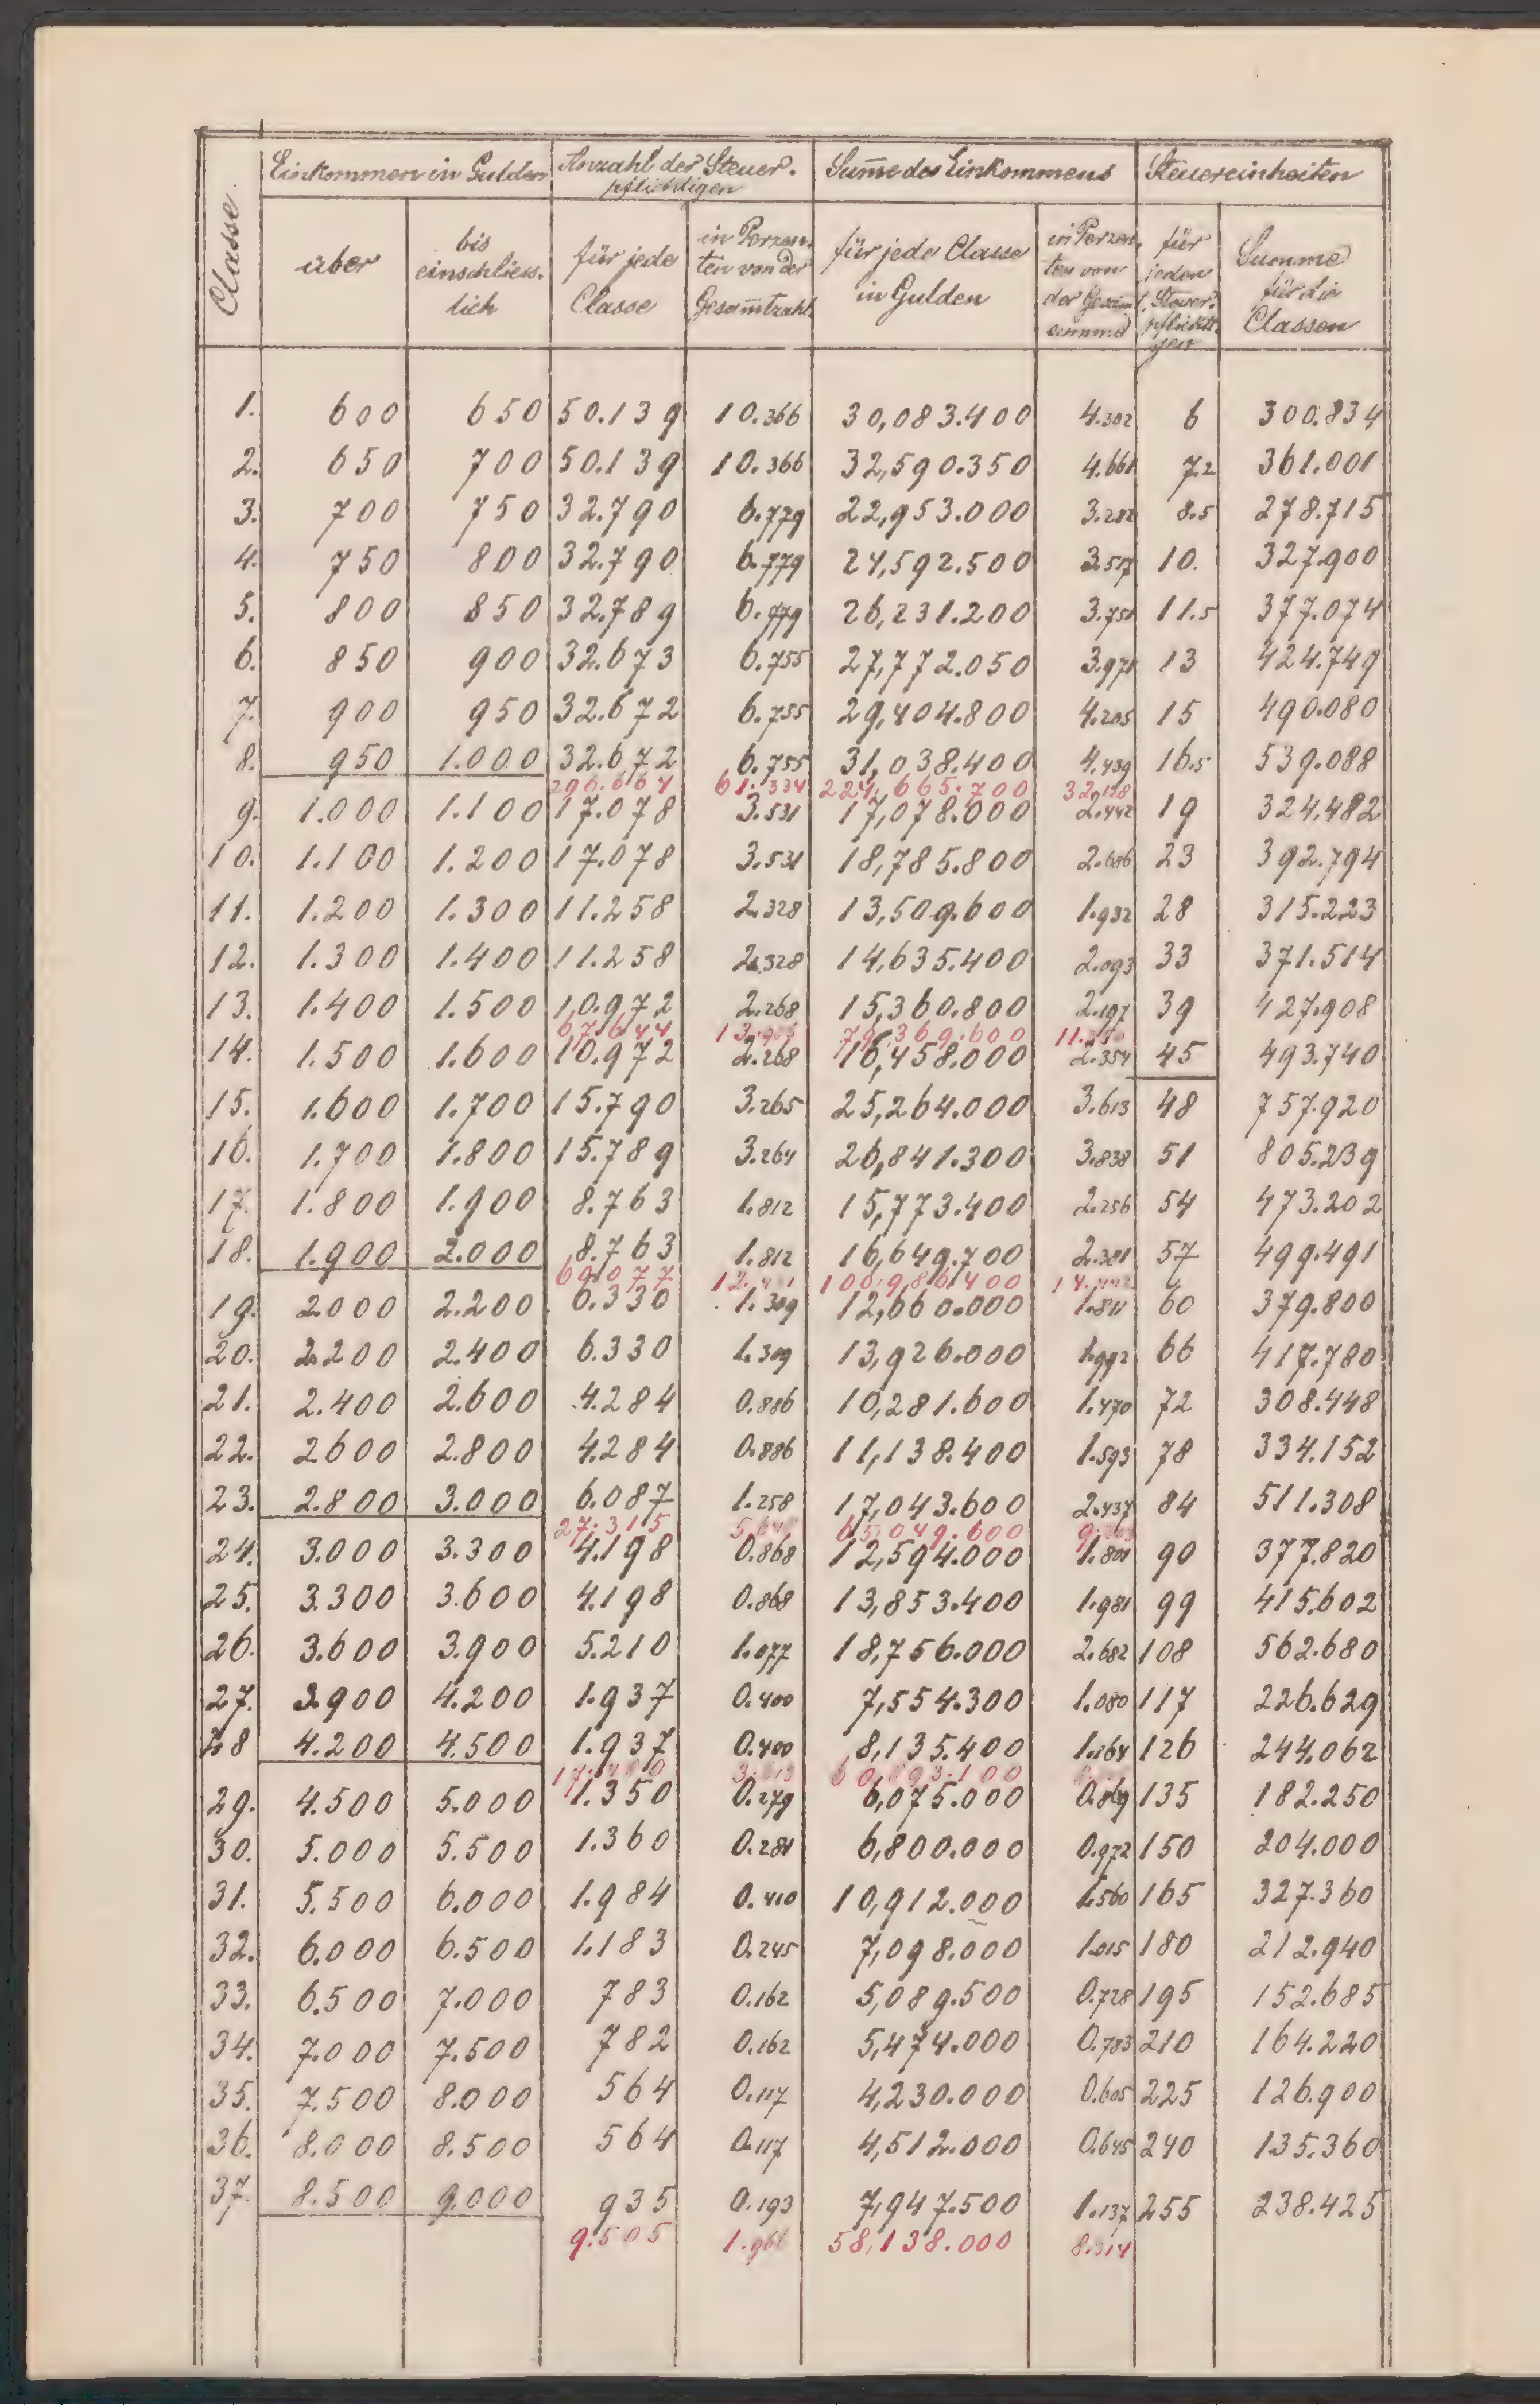 Classe.
Einkommen in Gulden
Anzahl der Steuer-
pflichtigen
Sum̄e des Einkommens
Steuereinheiten
über
bis
einschliess-
lich
für jede
Classe
in Porzen-
ten von der
Gesam̄tzahl
für jede Classe
in Gulden
in Porzen-
ten von
der Gesam̄t
summe
für
jeden
Steuer-
pflichti-
gen
Summe
für die
Classen
1. 600 650 50.139 10.366 30,083.400 4.302 6 300.834
2. 650 700 50.139 10.366 32,590.350 4.661 7.2 361.001
3. 700 750 32.790 6.779 22,953.000 3.282 8.5 278.715
4. 750 800 32.790 6.779 24,592.500 3.517 10. 327.900
5. 800 850 32.789 6.779 26,231.200 3.751 11.5 377.074
6. 850 900 32.673 6.755 27,772.050 3.971 13 424.749
7. 900 950 32.672 6.755 29,404.800 4.205 15 490.080
8. 950 1.000 32.672 6.755 31,038.400 4.439 16.5 539.088
296.664 61.334 224,665.700 32.128
9. 1.000 1.100 17.078 3.531 17,078.000 2.442 19 324.482
10. 1.100 1.200 17.078 3.531 18,785.800 2.686 23 392.794
11. 1.200 1.300 11.258 2.328 13,509.600 1.932 28 315.223
12. 1.300 1.400 11.258 2.328 14,635.400 2.093 33 371.514
13. 1.400 1.500 10.972 2.268 15,360.800 2.197 39 427.908
67.644 79,369.600 11.350
14. 1.500 1.600 10.972 2.268 16,458.000 2.354 45 493.740
15. 1.600 1.700 15.790 3.265 25,264.000 3.613 48 757.920
16. 1.700 1.800 15.789 3.264 26,841.300 3.838 51 805.239
17. 1.800 1.900 8.763 1.812 15,773.400 2.256 54 473.202
18. 1.900 2.000 8.763 1.812 16,649.700 2.381 57 499.491
69.077 100,986.400 14.442
19. 2000 2.200 6.330 1.309 12,660.000 1.811 60 379.800
20. 2.200 2.400 6.330 1.309 13,926.000 1.992 66 417.780
21. 2.400 2.600 4.284 0.886 10,281.600 1.470 72 308.448
22. 2600 2.800 4.284 0.886 11,138.400 1.593 78 334.152
23. 2.800 3.000 6.087 1.258 17,043.600 2.437 84 511.308
27.315 65,049.600
24. 3.000 3.300 4.198 0.868 12,594.000 1.801 90 377.820
25. 3.300 3.600 4.198 0.868 13,853.400 1.981 99 415.602
26. 3.600 3.900 5.210 1.077 18,756.000 2.682 108 562.680
27. 3.900 4.200 1.937 0.400 7,554.300 1.080 117 226.629
28 4.200 4.500 1.937 0.400 8,135.400 1.164 126 244.062
17.480 60,893.100
29. 4.500 5.000 1.350 0.279 6,075.000 0.869 135 182.250
30. 5.000 5.500 1.360 0.281 6,800.000 0.972 150 204.000
31. 5.500 6.000 1.984 0.410 10,912.000 1.560 165 327.360
32. 6.000 6.500 1.183 0.245 7,098.000 1.015 180 212.940
33. 6.500 7.000 783 0.162 5,089.500 0.728 195 152.685
34. 7.000 7.500 782 0.162 5,474.000 0.783 210 164.220
35. 7.500 8.000 564 0.117 4,230.000 0.605 225 126.900
36. 8.000 8.500 564 0.117 4,512.000 0.645 240 135.360
37. 8.500 9.000 935 0.193 7,947.500 1.137 255 238.425
9.505 1.966 58,138.000 8.314